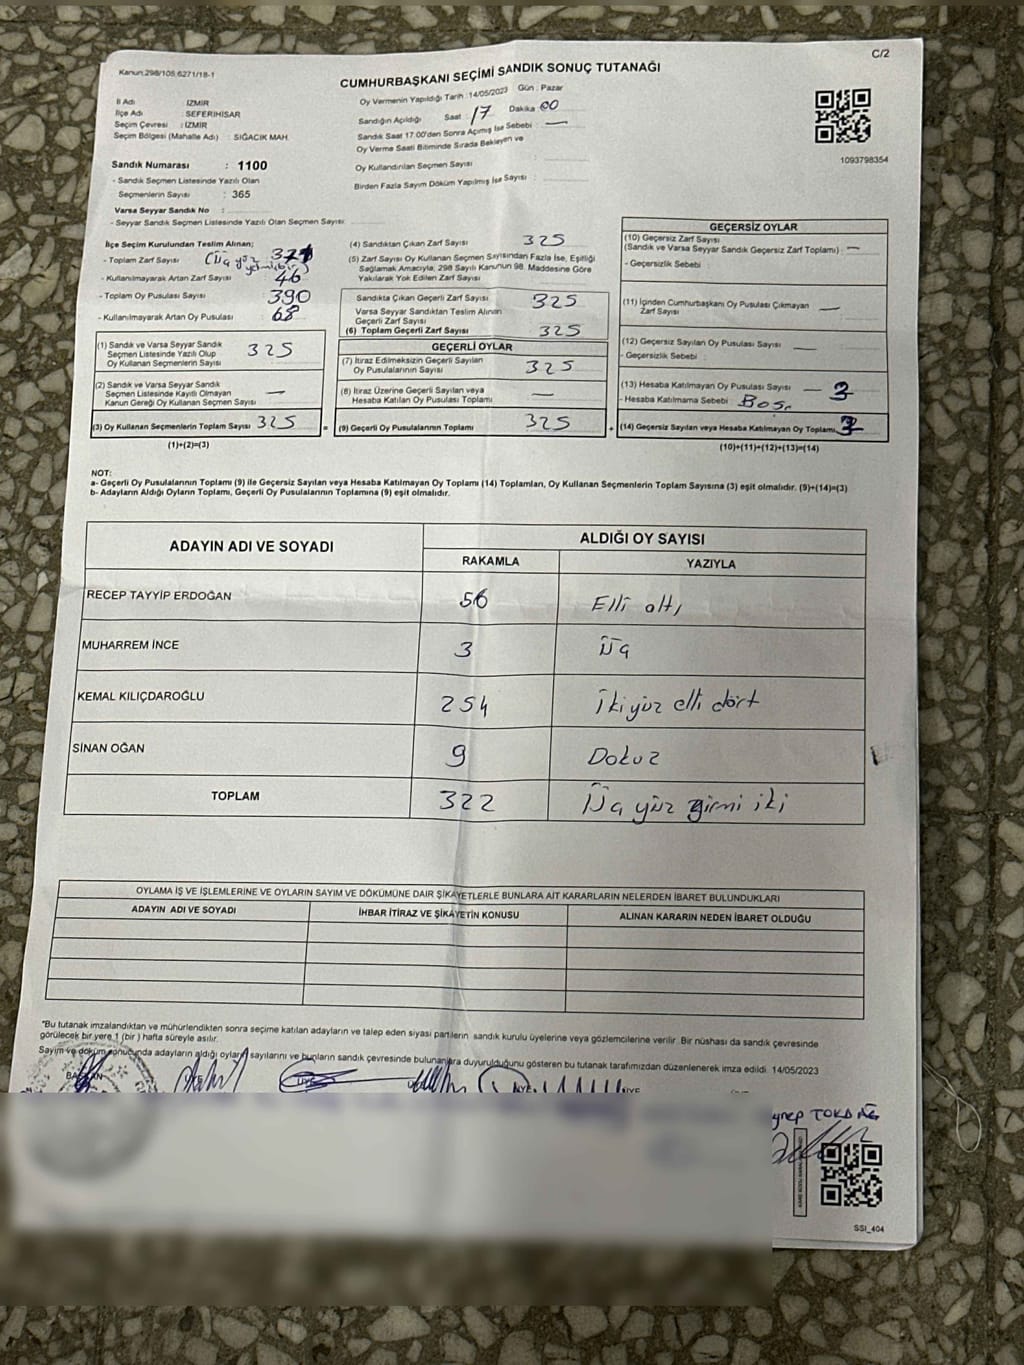 C/2
Kanun:298/105,6271/18-1
CUMHURBAŞKANI SEÇİMİ SANDIK SONUÇ TUTANAĞI
İl Adı : İZMİR
İlçe Adı : SEFERİHİSAR
Seçim Çevresi : İZMİR
Seçim Bölgesi (Mahalle Adı) : SIĞACIK MAH.
Oy Vermenin Yapıldığı Tarih : 14/05/2023 Gün : Pazar
Sandığın Açıldığı Saat : 17 Dakika : 00
Sandık Saat 17:00'den Sonra Açmış İse Sebebi : —
Oy Verme Saati Bitiminde Sırada Bekleyen ve
Oy Kullandırılan Seçmen Sayısı :
Birden Fazla Sayım Döküm Yapılmış İse Sayısı :
1093798354
Sandık Numarası : 1100
- Sandık Seçmen Listesinde Yazılı Olan
Seçmenlerin Sayısı : 365
Varsa Seyyar Sandık No :
- Seyyar Sandık Seçmen Listesinde Yazılı Olan Seçmen Sayısı:
İlçe Seçim Kurulundan Teslim Alınan;
- Toplam Zarf Sayısı (Üç yüz yetmiş bir) 371
- Kullanılmayarak Artan Zarf Sayısı : 46
- Toplam Oy Pusulası Sayısı : 390
- Kullanılmayarak Artan Oy Pusulası : 68
(1) Sandık ve Varsa Seyyar Sandık
Seçmen Listesinde Yazılı Olup
Oy Kullanan Seçmenlerin Sayısı : 325
(2) Sandık ve Varsa Seyyar Sandık
Seçmen Listesinde Kayıtlı Olmayan
Kanun Gereği Oy Kullanan Seçmen Sayısı : —
(3) Oy Kullanan Seçmenlerin Toplam Sayısı : 325 =
(1)+(2)=(3)
(4) Sandıktan Çıkan Zarf Sayısı : 325
(5) Zarf Sayısı Oy Kullanan Seçmen Sayısından Fazla İse, Eşitliği
Sağlamak Amacıyla; 298 Sayılı Kanunun 98. Maddesine Göre
Yakılarak Yok Edilen Zarf Sayısı :
Sandıkta Çıkan Geçerli Zarf Sayısı : 325
Varsa Seyyar Sandıktan Teslim Alınan
Geçerli Zarf Sayısı :
(6) Toplam Geçerli Zarf Sayısı : 325
GEÇERLİ OYLAR
(7) İtiraz Edilmeksizin Geçerli Sayılan
Oy Pusulalarının Sayısı : 325
(8) İtiraz Üzerine Geçerli Sayılan veya
Hesaba Katılan Oy Pusulası Toplamı : —
(9) Geçerli Oy Pusulalarının Toplamı : 325 +
GEÇERSİZ OYLAR
(10) Geçersiz Zarf Sayısı
(Sandık ve Varsa Seyyar Sandık Geçersiz Zarf Toplamı) : —
- Geçersizlik Sebebi :
(11) İçinden Cumhurbaşkanı Oy Pusulası Çıkmayan
Zarf Sayısı : —
(12) Geçersiz Sayılan Oy Pusulası Sayısı : —
- Geçersizlik Sebebi :
(13) Hesaba Katılmayan Oy Pusulası Sayısı : — 3
- Hesaba Katılmama Sebebi : Boş.
(14) Geçersiz Sayılan veya Hesaba Katılmayan Oy Toplamı: 3
(10)+(11)+(12)+(13)=(14)
NOT:
a- Geçerli Oy Pusulalarının Toplamı (9) ile Geçersiz Sayılan veya Hesaba Katılmayan Oy Toplamı (14) Toplamları, Oy Kullanan Seçmenlerin Toplam Sayısına (3) eşit olmalıdır. (9)+(14)=(3)
b- Adayların Aldığı Oyların Toplamı, Geçerli Oy Pusulalarının Toplamına (9) eşit olmalıdır.
ADAYIN ADI VE SOYADI
ALDIĞI OY SAYISI
RAKAMLA YAZIYLA
RECEP TAYYİP ERDOĞAN 56 Elli altı
MUHARREM İNCE 3 Üç
KEMAL KILIÇDAROĞLU 254 İkiyüz elli dört
SİNAN OĞAN 9 Dokuz
TOPLAM 322 Üç yüz yirmi iki
OYLAMA İŞ VE İŞLEMLERİNE VE OYLARIN SAYIM VE DÖKÜMÜNE DAİR ŞİKAYETLERLE BUNLARA AİT KARARLARIN NELERDEN İBARET BULUNDUKLARI
ADAYIN ADI VE SOYADI İHBAR İTİRAZ VE ŞİKAYETİN KONUSU ALINAN KARARIN NEDEN İBARET OLDUĞU
"Bu tutanak imzalandıktan ve mühürlendikten sonra seçime katılan adayların ve talep eden siyasi partilerin sandık kurulu üyelerine veya gözlemcilerine verilir. Bir nüshası da sandık çevresinde
görülecek bir yere 1 (bir ) hafta süreyle asılır.
Sayım ve döküm sonucunda adayların aldığı oyların sayılarını ve bunların sandık çevresinde bulunanlara duyurulduğunu gösteren bu tutanak tarafımızdan düzenlenerek imza edildi. 14/05/2023
BAŞKAN
ÜYE
ÜYE
SSI_404